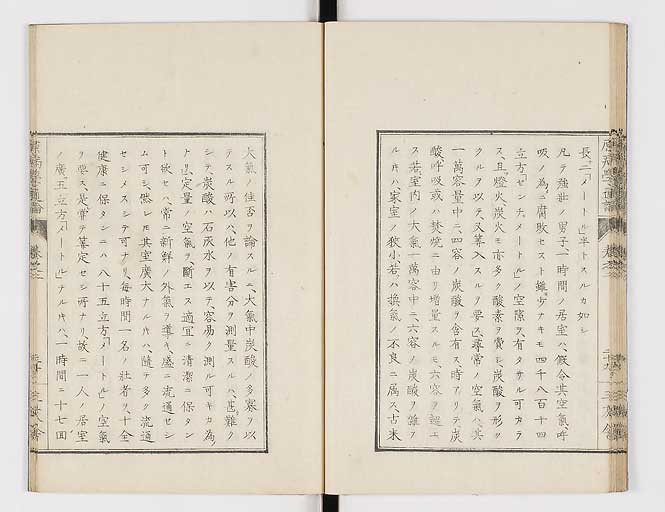 長二「メートル」半トスルカ如シ
凡テ強壯ノ男子、一時間ノ居室ハ、假令其空氣、呼
吸ノ為ニ腐敗セスト雖、少ナキモ四千八百十四
立方「センチメートル」ノ空隙ヲ有タサル可カラ
ス、且燈火、炭火モ亦多ク酸素ヲ費シ、炭酸ヲ形ツ
クルヲ以テ、又算入スルヲ要ス、尋常ノ空氣ハ、其
一萬容量中ニ、四容ノ炭酸ヲ含有ス、時アリテ炭
酸、呼吸或ハ焚焼ニ由リ増量スルモ、六容ヲ踰エ
ス、若室内ノ大氣一萬容中ニ、六容ノ炭酸ヲ雜フ
ルキハ、家室ノ狹小若ハ換氣ノ不良ニ属ス、古来
大氣ノ佳否ヲ論スルニ、大氣中炭酸ノ多寡ヲ以
テスル所以ハ、他ノ有害分ヲ測量スルハ、甚難ク
シテ、炭酸ハ石灰水ヲ以テ、容易ク測ル可キカ為
ナリ、定量ノ空氣ヲ、斷エス適宜ニ清潔ニ保タン
ト欲セハ、常ニ新鮮ノ外氣ヲ導キ、盛ニ流通セシ
ム可シ、然レモ其室廣大ナルキハ、隨テ多ク流通
セシメスシテ可ナリ、毎時間一名ノ壯者ヲ、十全
健康ニ保タシニハ八十五立方「メートル」ノ空氣
ヲ要ス、是嘗テ算定セシ所ナリ、故ニ一人ノ居室
ノ廣、五立方「メートル」ナルキハ、一時間ニ十七回